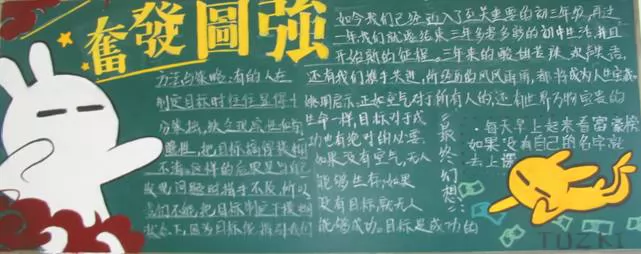 奮發圖強
如今我们已经迈入了至关重要的初三年级,再过
一年我们就要结束三年多姿多彩的初中生活,并且
开始新的征程。三年来的酸甜苦辣、欢歌笑语,
还有我们携手共进,所经历的风风雨雨,都将成为人生
方法与策略:有的人在
制定目标时往往显得十
分
把目标搞得模糊
不清,这样的后果是当
发现问题时措手不及,所以
我们不能把目标制定于模糊
状态下,因为目标能指引我们
正如空气对于所有人的
生命一样,目标对于成
功也有绝对的必要
如果没有空气,无人
能够生存,如果
没有目标,就无人
能够成功。目标是成功的
最终幻想:
每天早上起来看富豪榜
如果没有自己的名字就
去上课
TUZKI